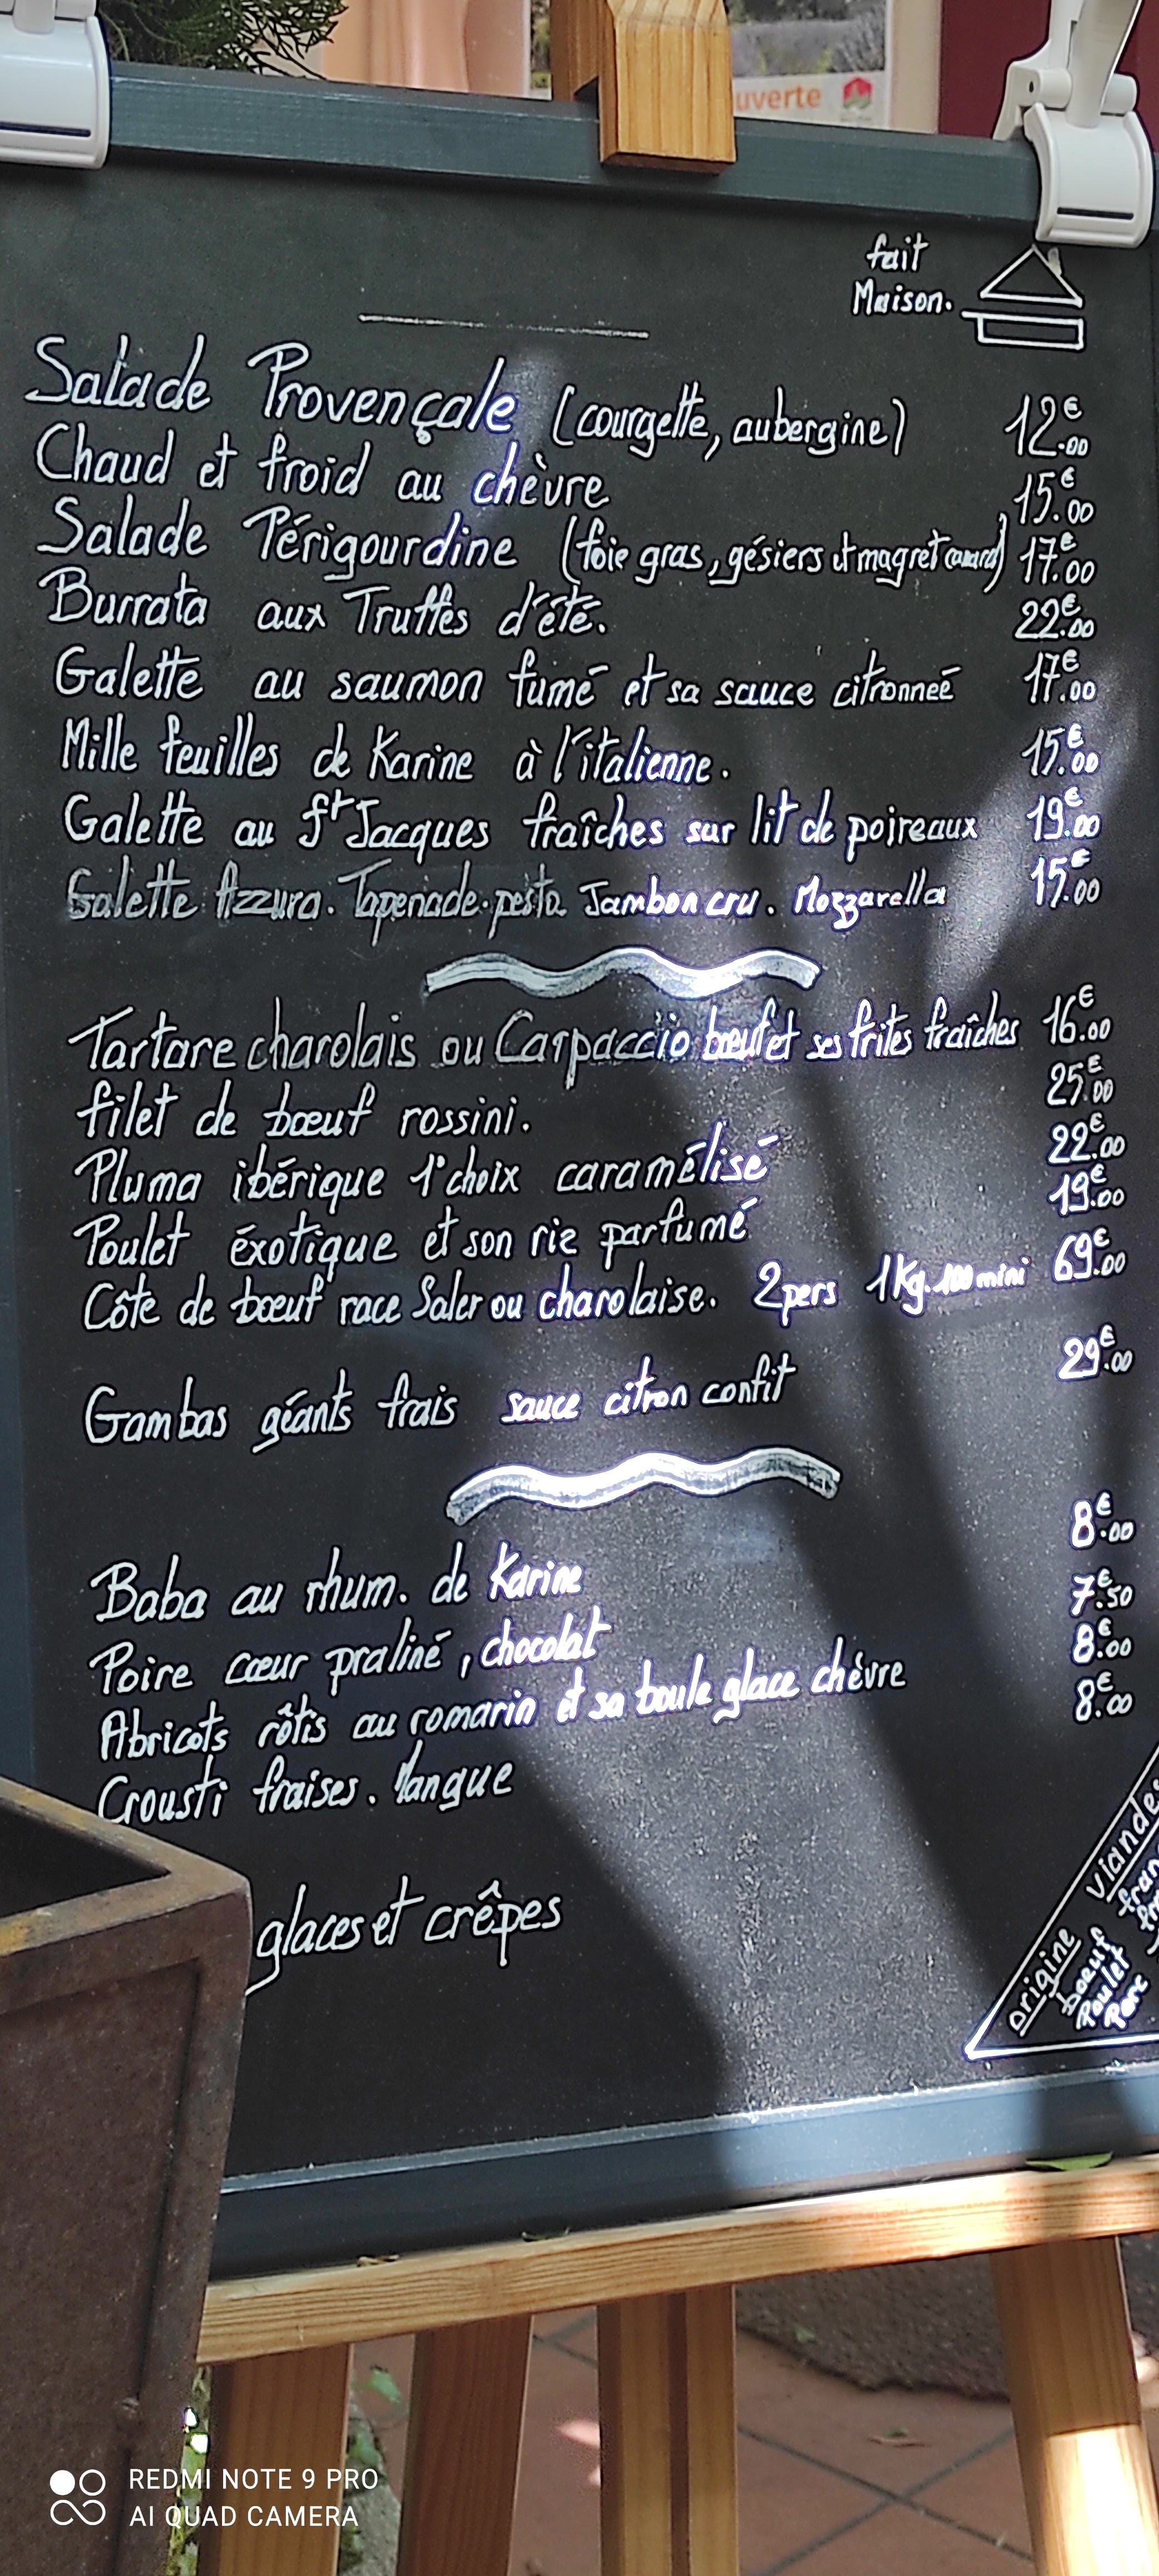 uverte
fait
Maison.
Salade Provençale (courgette, aubergine) 12€.00
Chaud et froid au chèvre 15€.00
Salade Périgourdine (foie gras, gésiers et magret canard) 17€.00
Burrata aux Truffes d'été. 22€.00
Galette au saumon fumé et sa sauce citronneé 17€.00
Mille feuilles de Karine à l'italienne. 15€.00
Galette au St Jacques fraîches sur lit de poireaux 19€.00
Galette Azzura. Tapenade. pesto Jambon cru. Mozzarella 15€.00
Tartare charolais ou Carpaccio bœuf et ses frites fraîches 16€.00
filet de bœuf rossini. 25€.00
Pluma ibérique 1° choix caramélisé 22€.00
Poulet éxotique et son riz parfumé 19€.00
Côte de bœuf race Saler ou charolaise. 2pers 1Kg.100 mini 69€.00
Gambas géants frais sauce citron confit 29€.00
Baba au rhum. de Karine 8€.00
Poire cœur praliné, chocolat 7€.50
Abricots rôtis au romarin et sa boule glace chèvre 8€.00
Crousti fraises. Mangue 8€.00
glaces et crêpes
origine viandes
bœuf
Poulet
Porc
REDMI NOTE 9 PRO
AI QUAD CAMERA